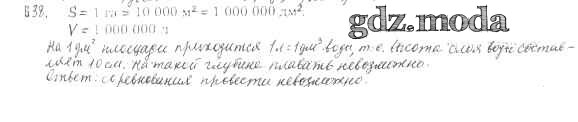 638. S = 1 га = 10 000 м² = 1 000 000 дм².
V = 1 000 000 л
gdz.moda
На 1 дм² площади приходится 1 л = 1 дм³ воды, т.е. высота слоя воды состав-
ляет 10 см. На такой глубине плавать невозможно.
Ответ: соревнования провести невозможно.